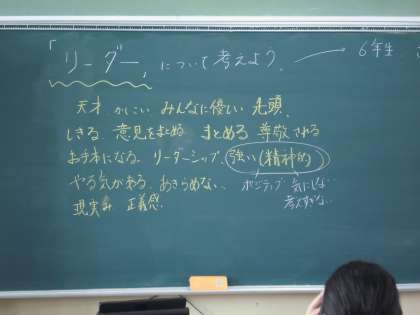 「リーダー」について考えよう。 → 6年生
天才 かしこい みんなに優しい 先頭
しきる 意見をまとめ まとめる 尊敬される
お手本になる リーダーシップ 強い(精神的)
やる気がある あきらめない ポジティブ 気にしない
現実み 正義感 考えすぎない